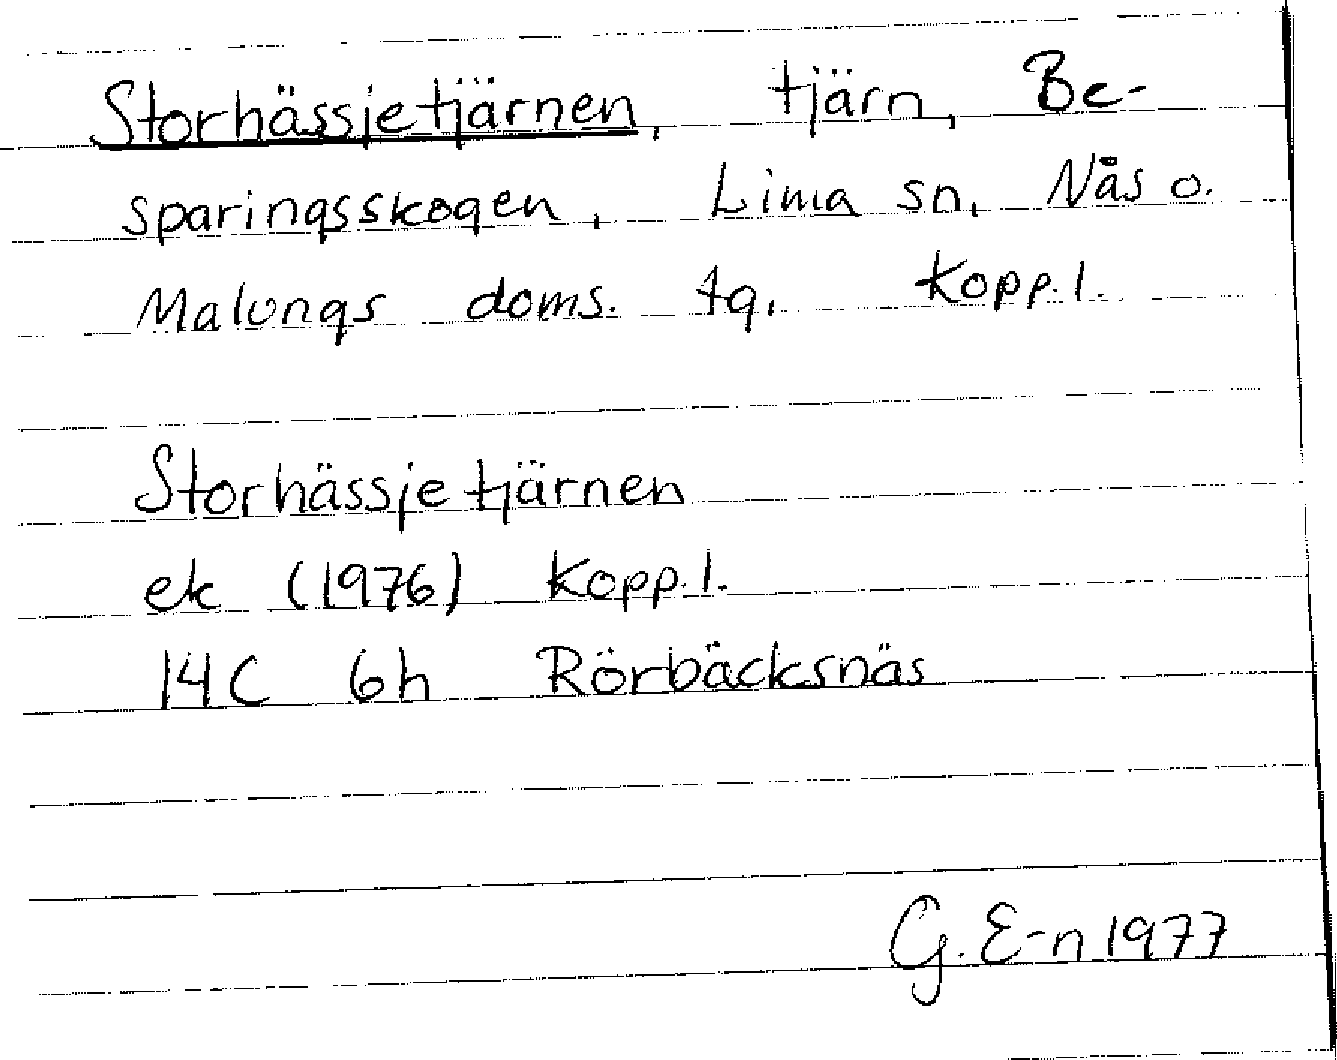 Storhässjetjärnen, tjärn, Be-
sparingsskogen, Lima sn, Nås o.
Malungs doms. tg, Kopp.l.
Storhässjetjärnen
ek (1976) Kopp.l.
14C 6h Rörbäcksnäs
G. E-n 1977